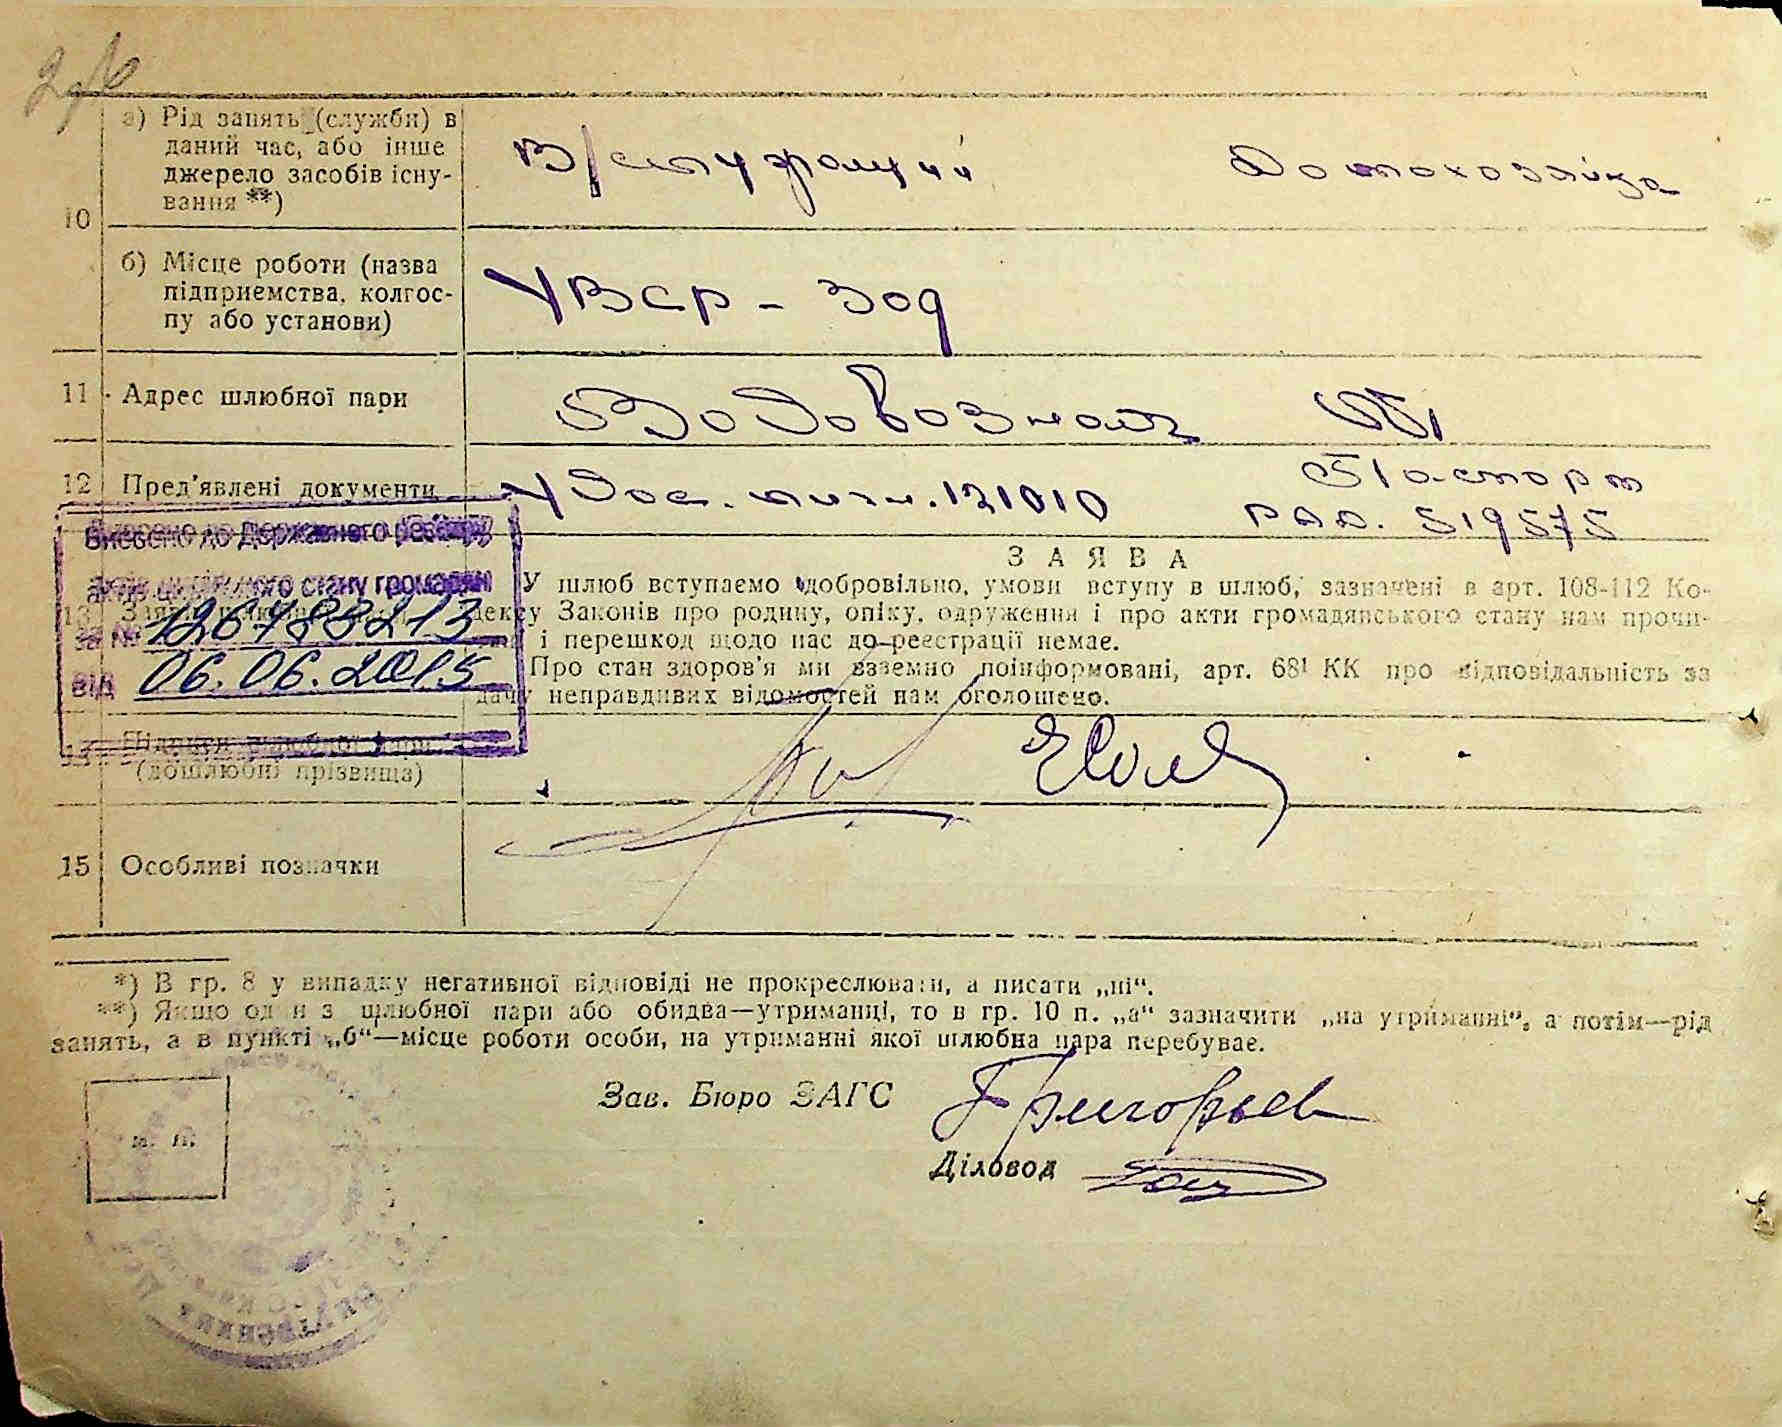 а) Рід занять (служби) в
даний час, або інше
джерело засобів існу-
вання **)
В/служащий Домохозяйка
10
б) Місце роботи (назва
підприємства, колгос-
пу або установи)
УВСР-309
11 Адрес шлюбної пари
12 Пред'явлені документи
Удос. личн. 121010 Паспорт
519575
Внесено до Державного реєстру
актів цивільного стану громадян
за № 126788213
від 06.06.2015
ЗАЯВА
У шлюб вступаємо добровільно, умови вступу в шлюб, зазначені в арт. 108-112 Ко-
дексу Законів про родину, опіку, одруження і про акти громадянського стану нам прочи-
і перешкод щодо нас до реєстрації немає.
Про стан здоров'я ми взаємно поінформовані, арт. 68¹ КК про відповідальність за
дачу неправдивих відомостей нам оголошено.
(дошлюбні прізвища)
15 Особливі позначки
*) В гр. 8 у випадку негативної відповіді не прокреслювати, а писати „ні“.
**) Якщо один з шлюбної пари або обидва—утриманці, то в гр. 10 п. „а“ зазначити „на утриманні“, а потім—рід
занять, а в пункті „б“—місце роботи особи, на утриманні якої шлюбна пара перебуває.
Зав. Бюро ЗАГС Григорьев
м. п.
Діловод